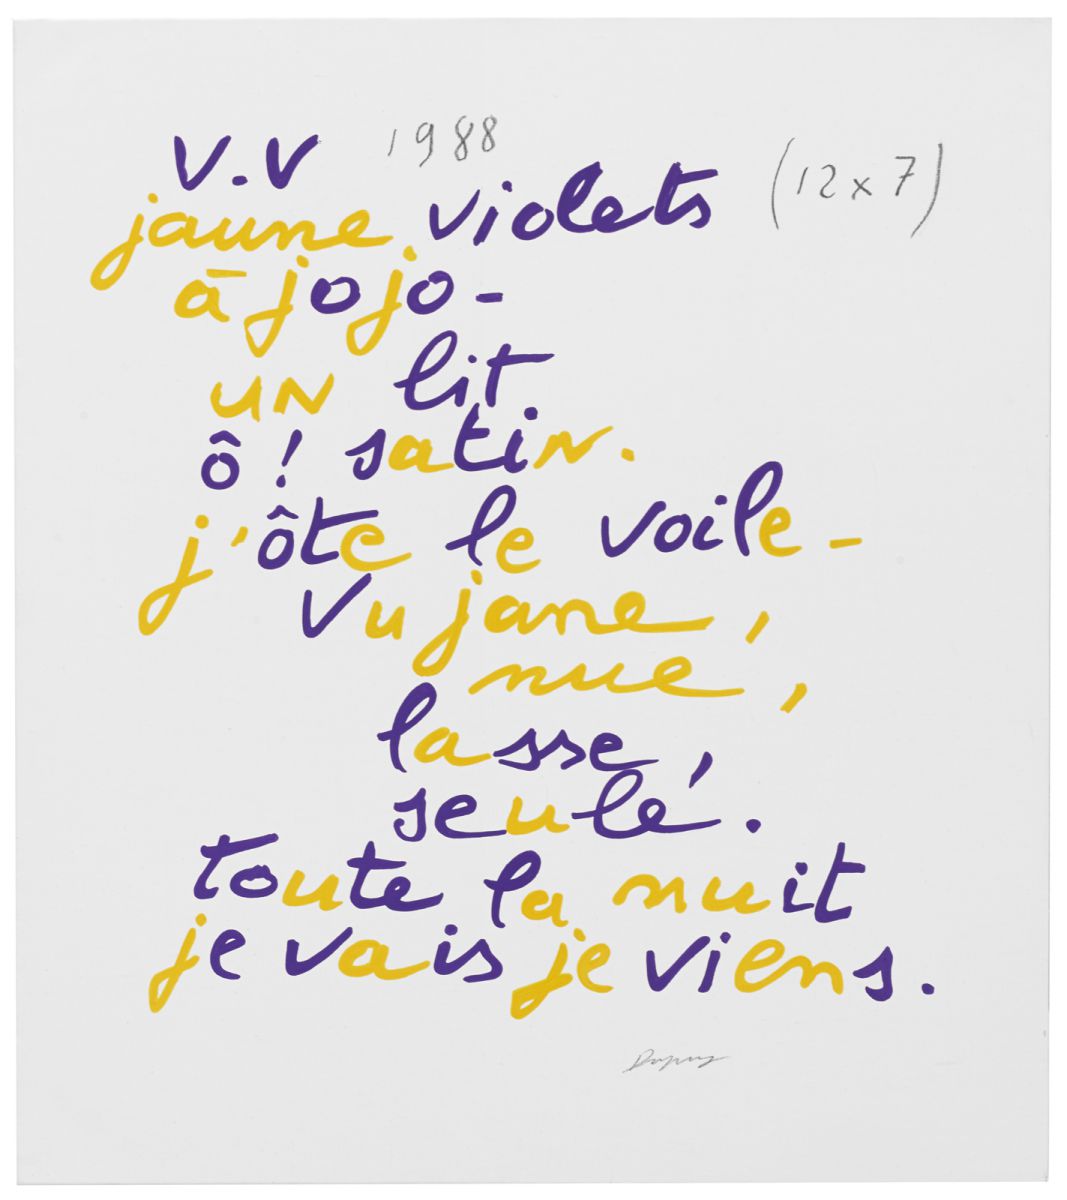 v.v 1988
jaune violets (12 x 7)
à jojo -
un lit
ô ! satin.
j'ôte le voile -
vu jane,
nue,
lasse,
seule.
toute la nuit
je vais je viens.
Dupuy